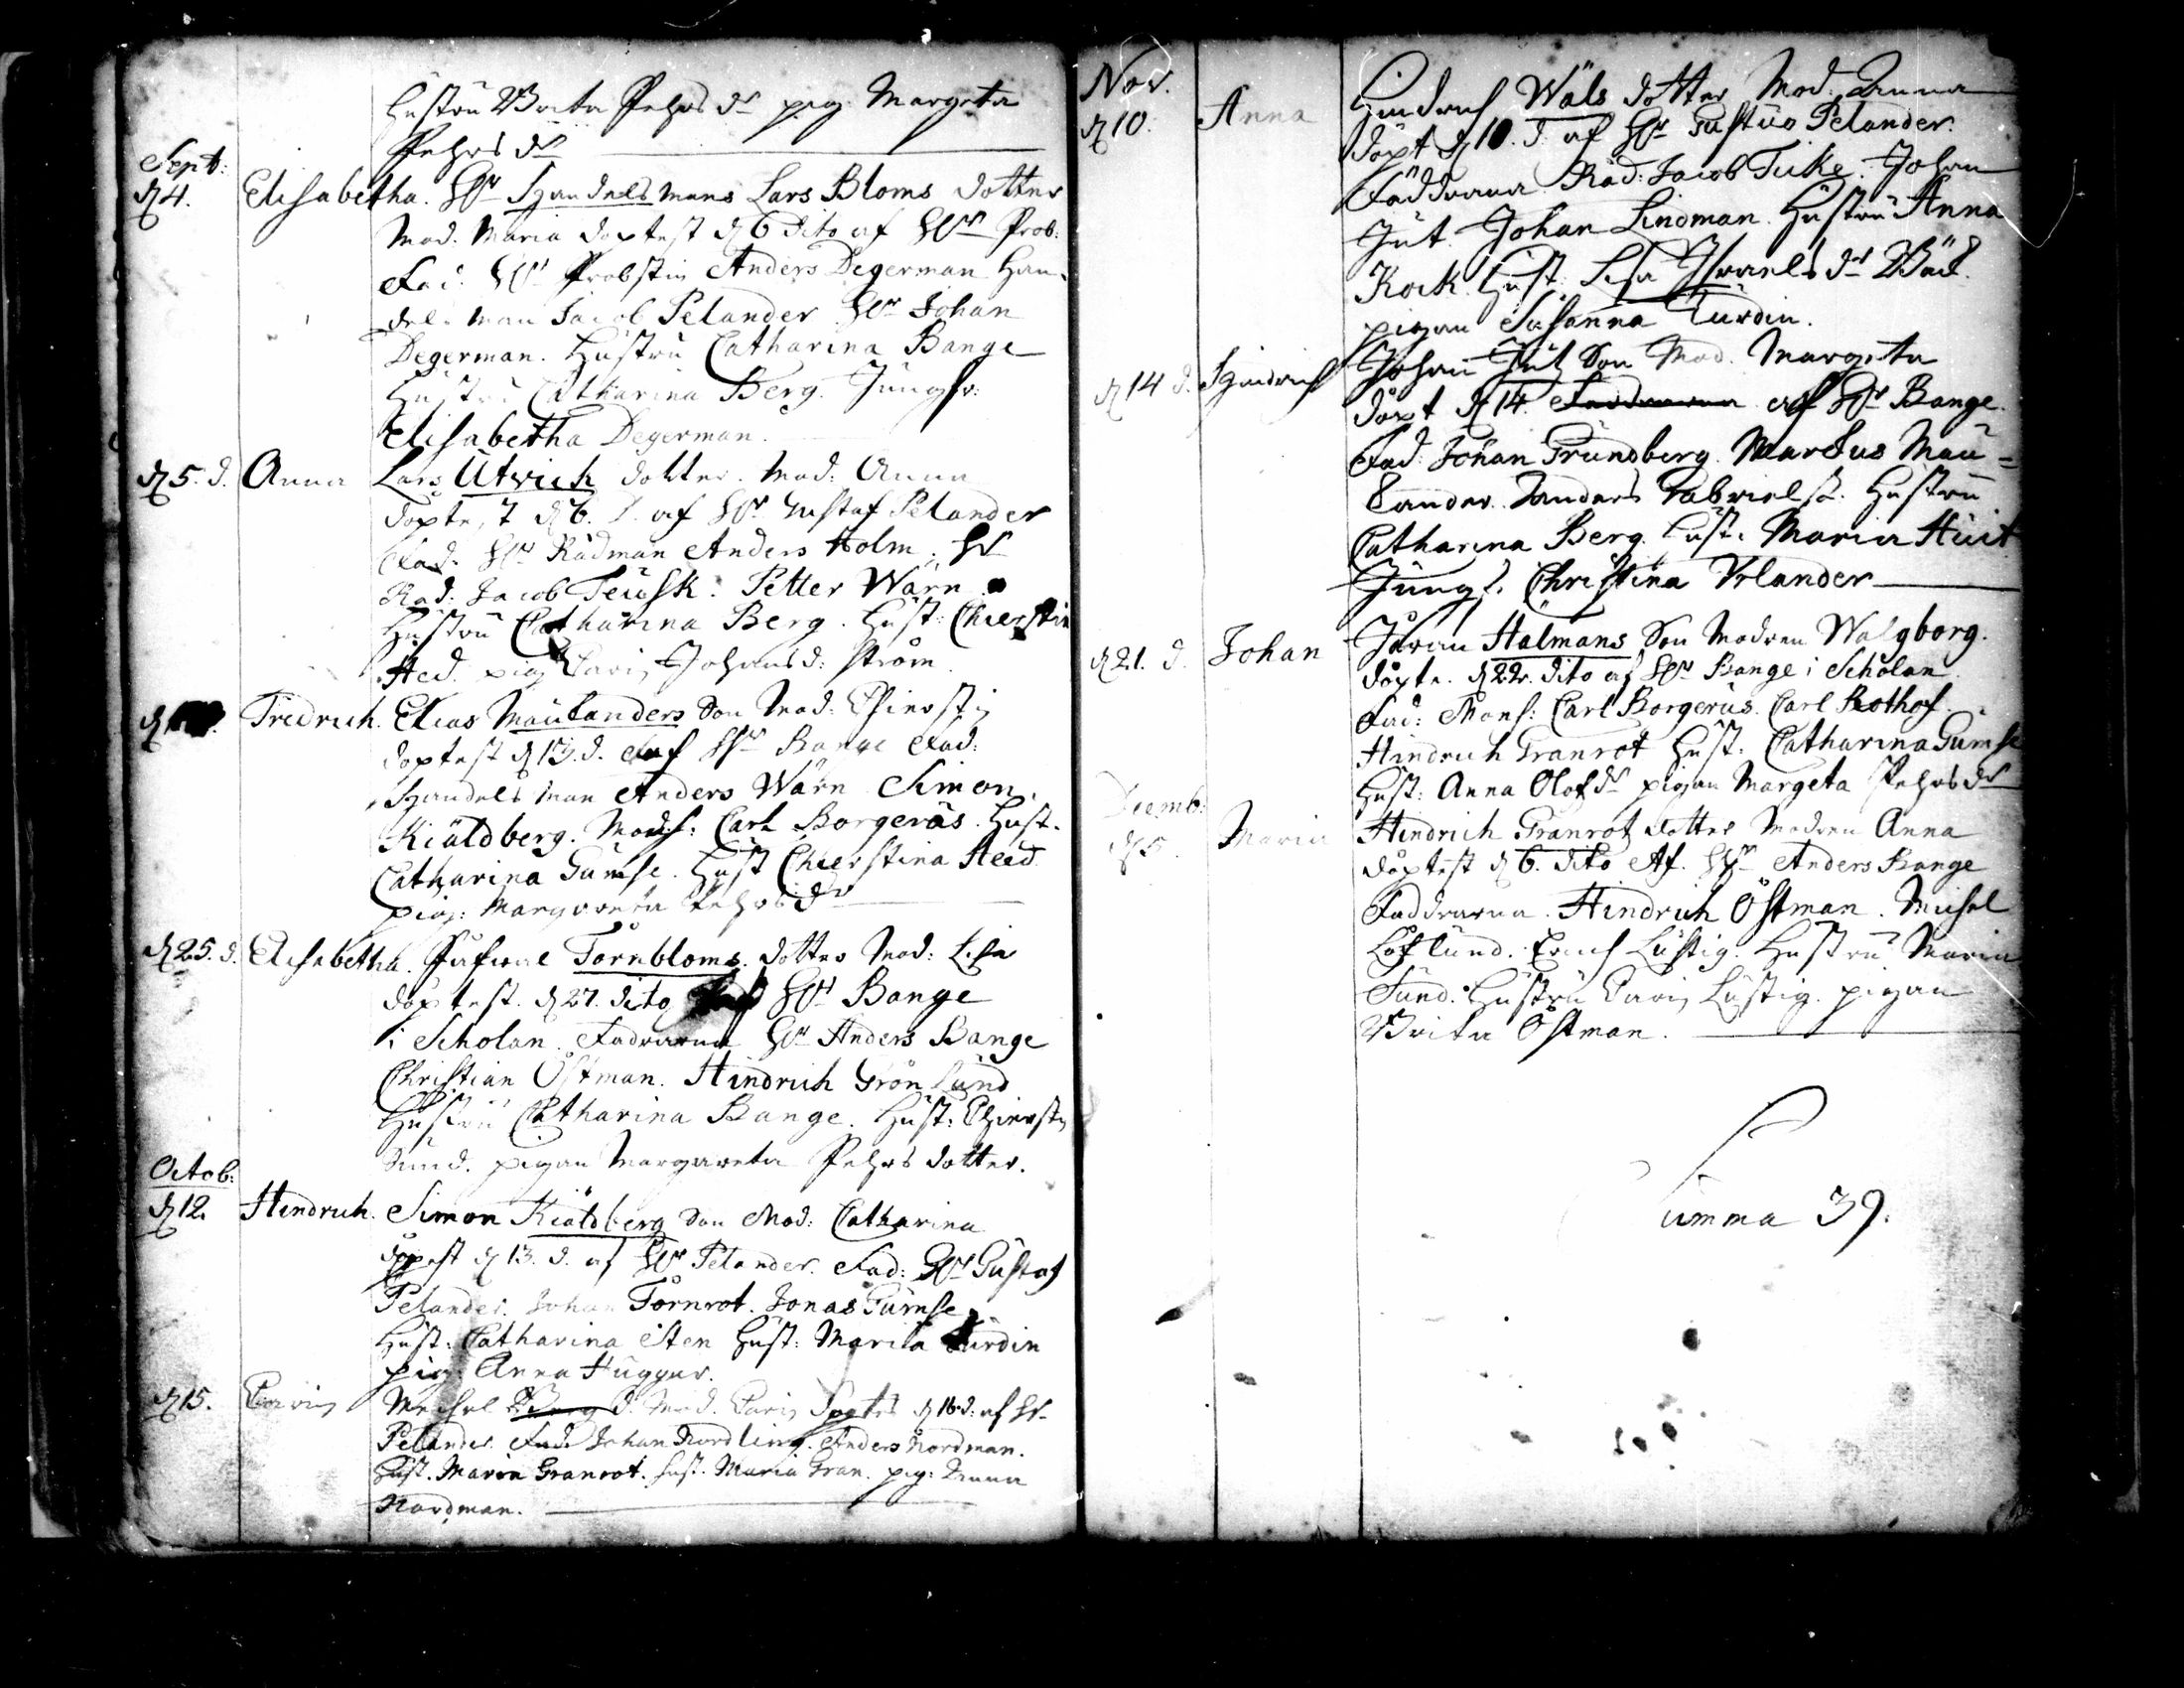 Hustru Brita Pehrs dr pig. Margeta
Pehrs dr
Sept:
d 4. Elisabetha. Hr Handelsmans Lars Bloms dotter
Mod. Maria döptest d 6 dito af Hr Prob:
Fad. Hr Probstin Anders Degerman Han-
dels man Jacob Pelander Hr Johan
Degerman. Hustru Catharina Bange
Hustru Catharina Berg. Jungfr:
Elisabetha Degerman.
d 5. d. Anna Lars Utrich dotter. Mod: Anna
döptest d 6. d. af Hr Gustaf Pelander
Fad: Hr Rådman Anders Holm. Hr
Råd: Jacob Teüsk: Petter Wärn
Hustru Catharina Berg. Hust: Chierstin
Hed. pig Carin Johansd: ström.
Fredrich. Elias Maulanders Son Mod: Chierstin
döptest d 13. d. af Hr Bange Fad:
Handels man Anders Wärn Simon
Kiäldberg. Mons: Carl Borgerus. Hust.
Catharina Gumse. Hust Chierstina Heed
pig: Margareta Pehrs dr
d 25. d. Elisabetha. Törnbloms. dotter Mod: Lisa
döptest. d 27. dito Hr Bange
i Scholan. Fadrarna Hr Anders Bange
Christian Östman. Hindrich Grönlund
Hustru Catharina Bange. Hust: Chierstin
Sund. pigan Margareta Pehrs dotter.
Octob:
d 12. Hendrich. Simon Kiäldberg Son Mod: Catharina
döptest d 13. d. af Hr Pelander. Fad: Hr Gustaf
Pelander. Johan Törnrot. Jonas Gumse
Hust: Catharina Sten Hust: Maria Turdin
pig: Anna Huggur.
d 15. Carin Michel Berg d. Mod. Carin Döptes d 16. d: af Hr
Pelander. Fad: Johan Nordling. Anders Nordman.
Hust. Maria Granrot. hust. Maria Gran. pig: Anna
Nordman.
Nov.
d 10. Anna Hindrich Wäls dotter Mod. Anna
döpt d 10. d. af Hr Gustus Pelander.
Faddrarna Råd: Jacob Tiske. Johan
Jut. Johan Lindman. Hustru Anna
Kock. Hust. Lisa Israels dr
pigan Susanna Turdin.
d 14 d. Hindrich Johan Jut Son Mod. Margeta
döpt d 14. Faddrarna af Hr Bange.
Fad: Johan Grundberg. Markus Mau=
lander. Anders Gabriels. Hustru
Catharina Berg. hust. Maria Huit
Jungf. Christina Vrlander
d 21. d. Johan Jöran Halmans Son Modren Walgborg.
döpte. d 22. dito af Hr Bange i Scholan.
Fad: Mons: Carl Borgerus. Carl Rothof.
Hindrich Granrot Hust. Catharina Gumse
Hust: Anna Olofs dr pigan Margeta Pehrs dr
Decemb:
d 5. Maria Hindrich Granrot dotter Modren Anna
döptest d 6. dito Af. Hr Anders Bange
Faddrarna. Hindrich Östman. Michel
Löflund. Erich Lustig. Hustru Maria
Sund. Hustru Carin Lustig. pigan
Brita Östman.
Summa 39.